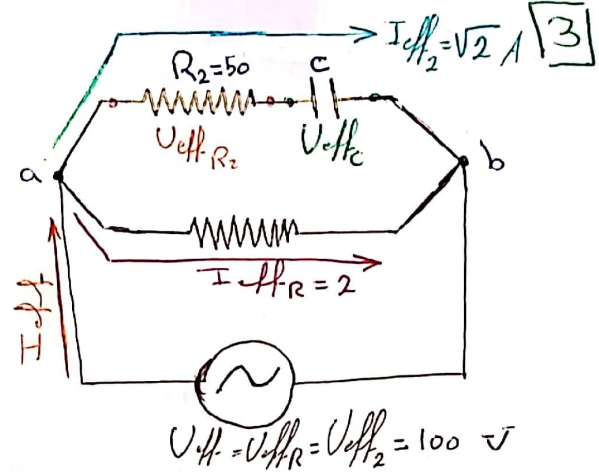 I eff₂ = √2 A
3
R₂=50
C
Ueff R₂
Ueff C
a
b
I eff R = 2
I eff
Ueff = Ueff R = Ueff₂ = 100 V